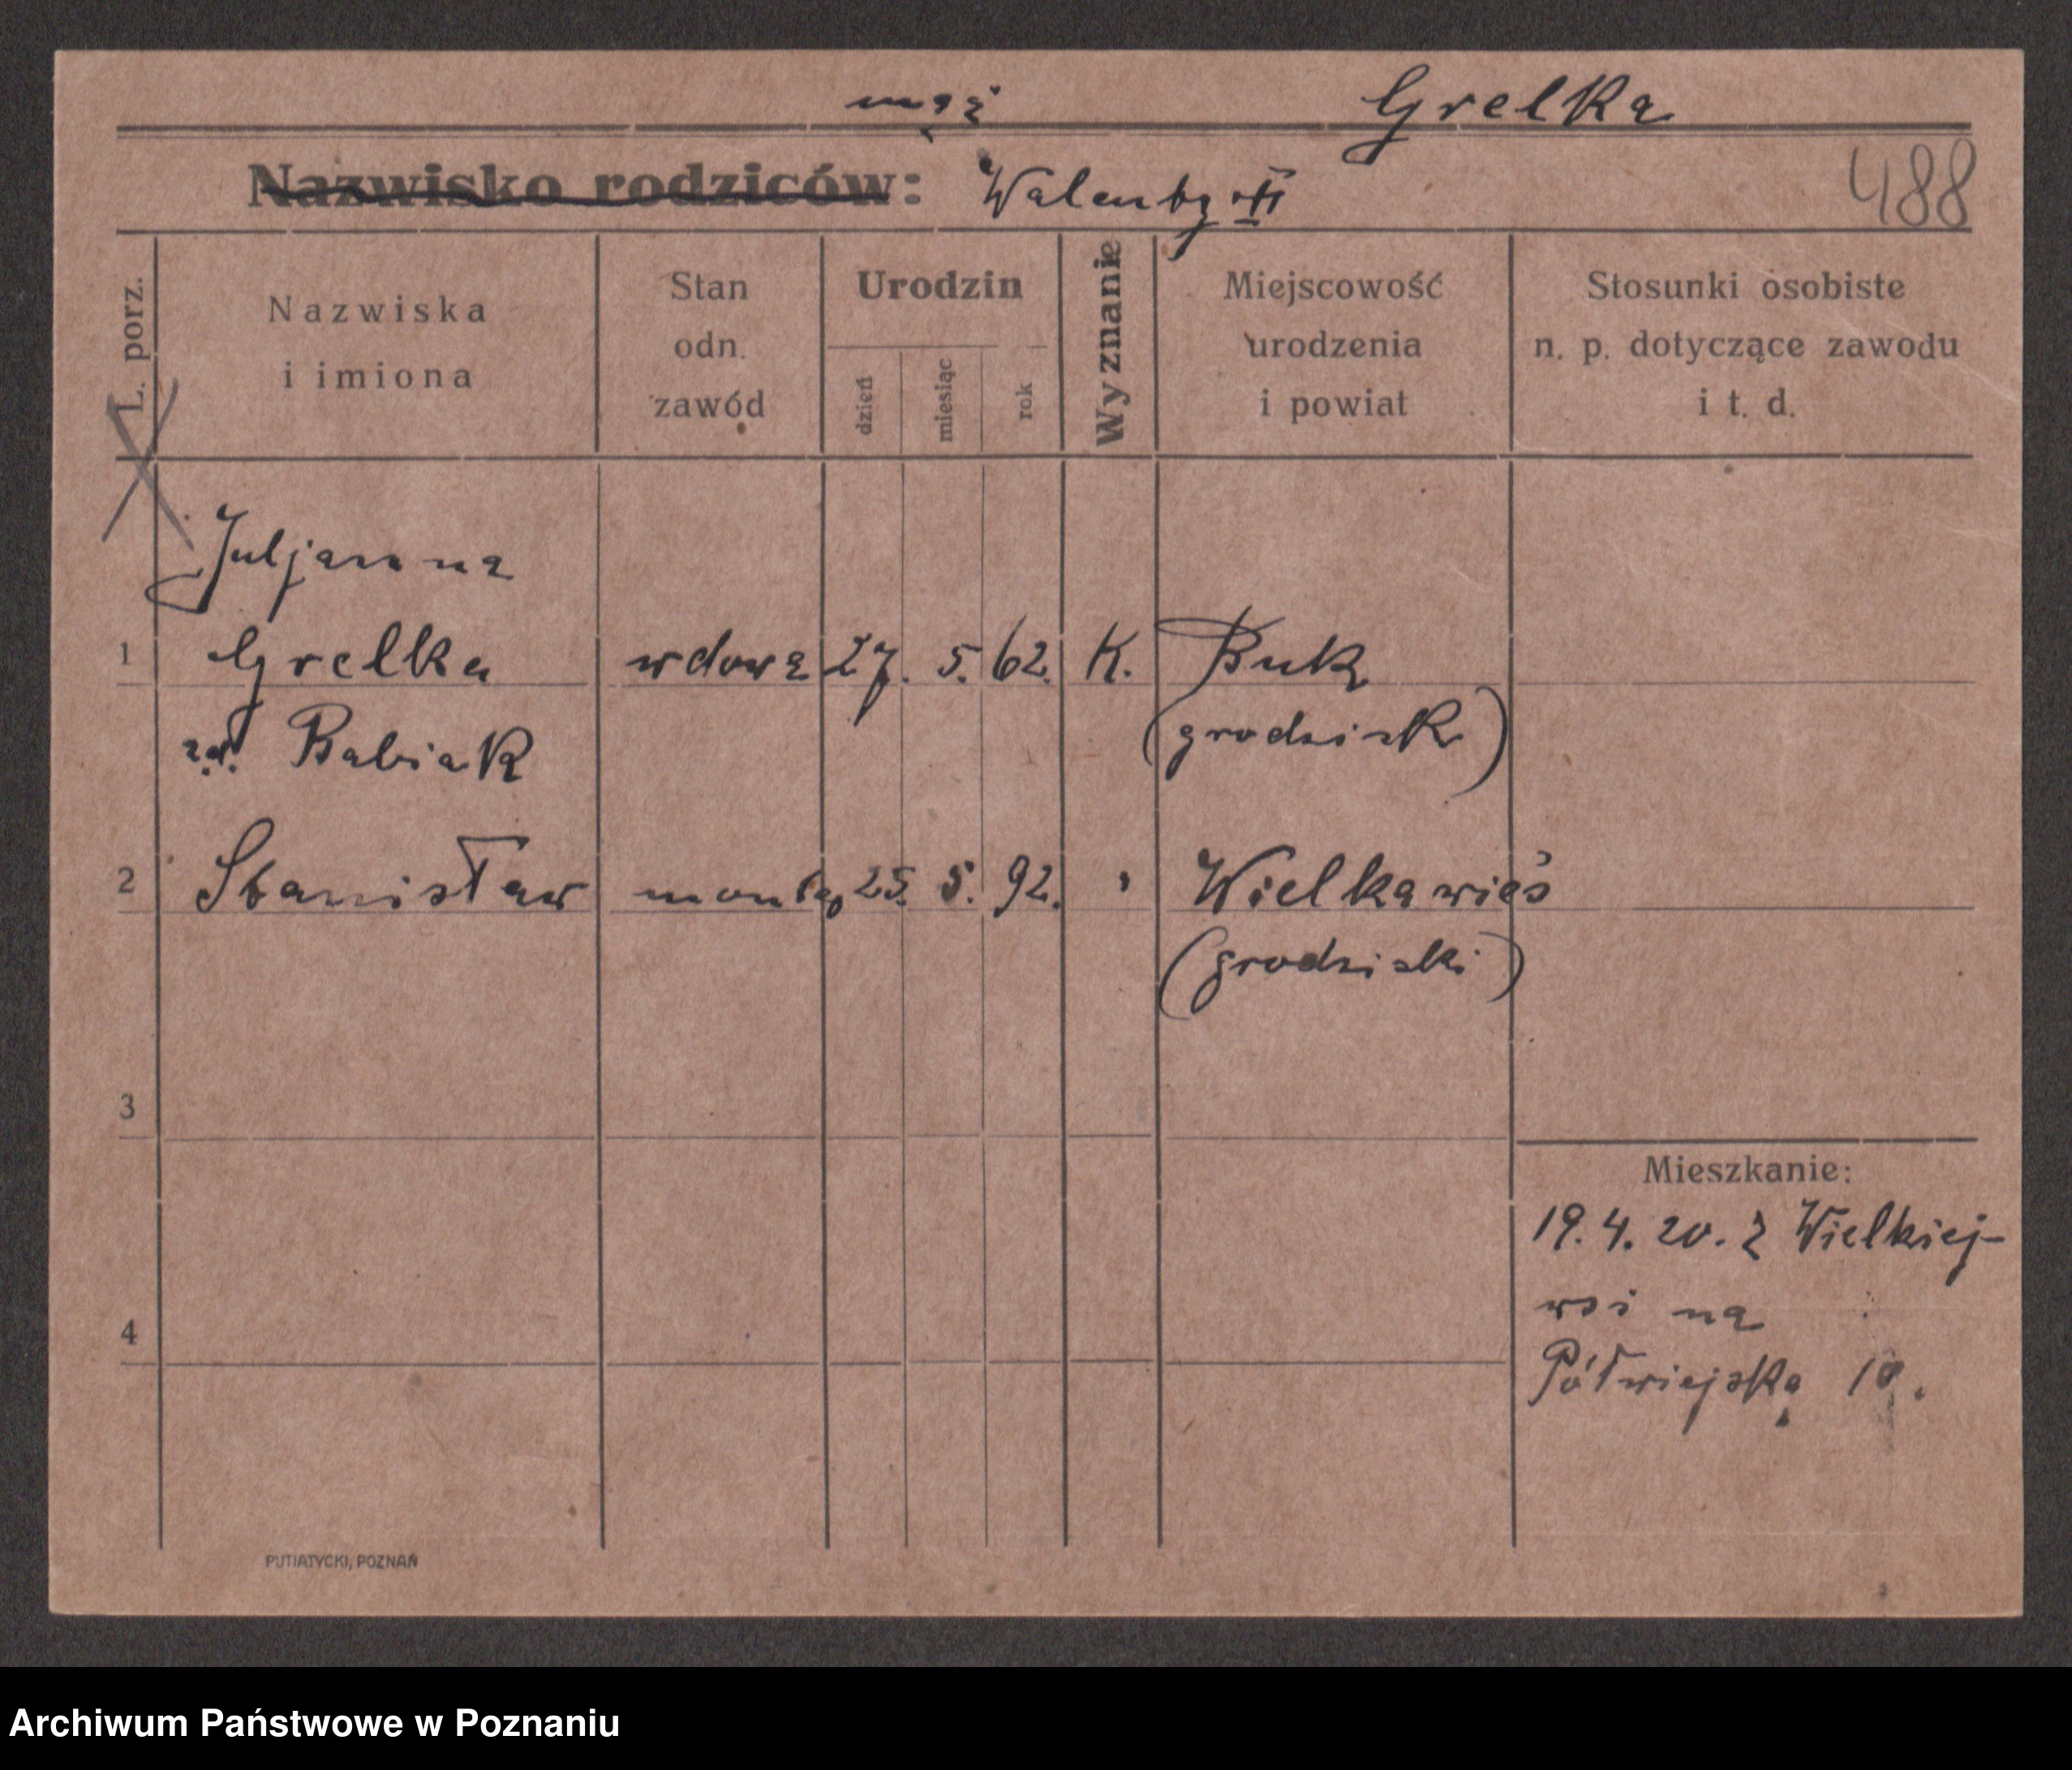 mąż Grelka
Nazwisko rodziców: Walenty
488
L. porz.
Nazwiska
i imiona
Stan
odn.
zawód
Urodzin
dzień
miesiąc
rok
Wyznanie
Miejscowość
urodzenia
i powiat
Stosunki osobiste
n. p. dotyczące zawodu
i t. d.
Juljanna
1 Grelka wdowa 27. 5. 62. K. Buk
Babiak (grodzisk)
2 Stanisław 25. 5. 92. Wielkawieś
(grodziski)
3
Mieszkanie:
19. 4. 20. z Wielkiej-
wsi na
4
Półwiejską 10.
PUTIATYCKI, POZNAŃ
Archiwum Państwowe w Poznaniu